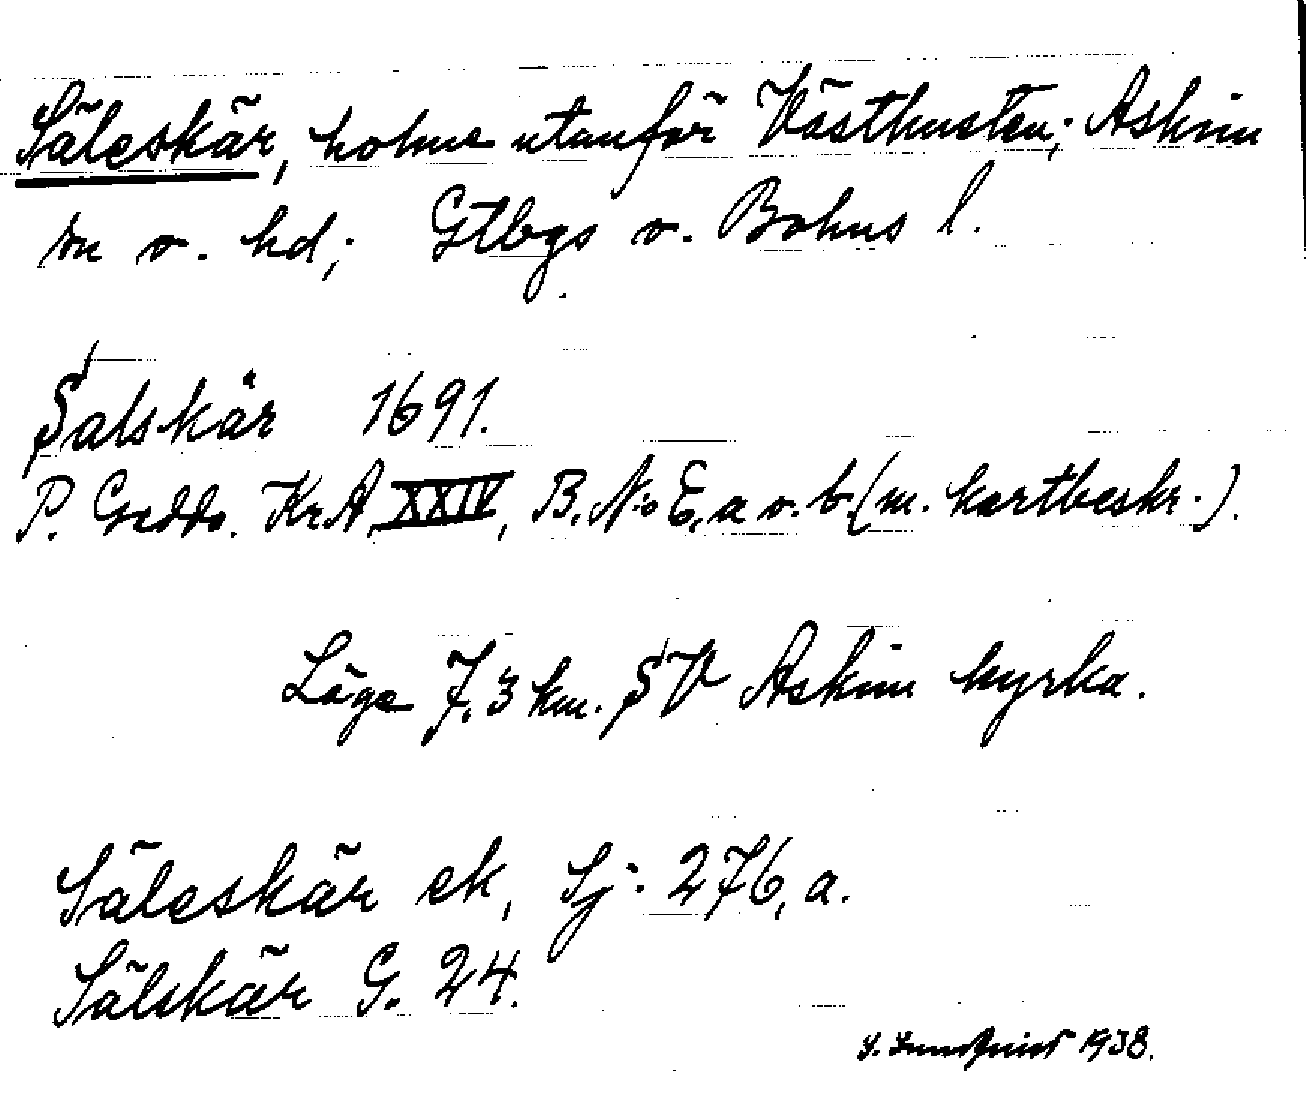 Säleskär, holme utanför Västkusten; Askim
sn o. hd; Gtbgs o. Bohus l.
Salskär 1691.
P. Gedda. KrA XXIV, B. No 6, a o. b. (m. kartbeskr.).
Läge 7,3 km. SV Askim kyrka.
Säleskär ek, Sj. 276, a.
Sälskär G. 24.
1938.